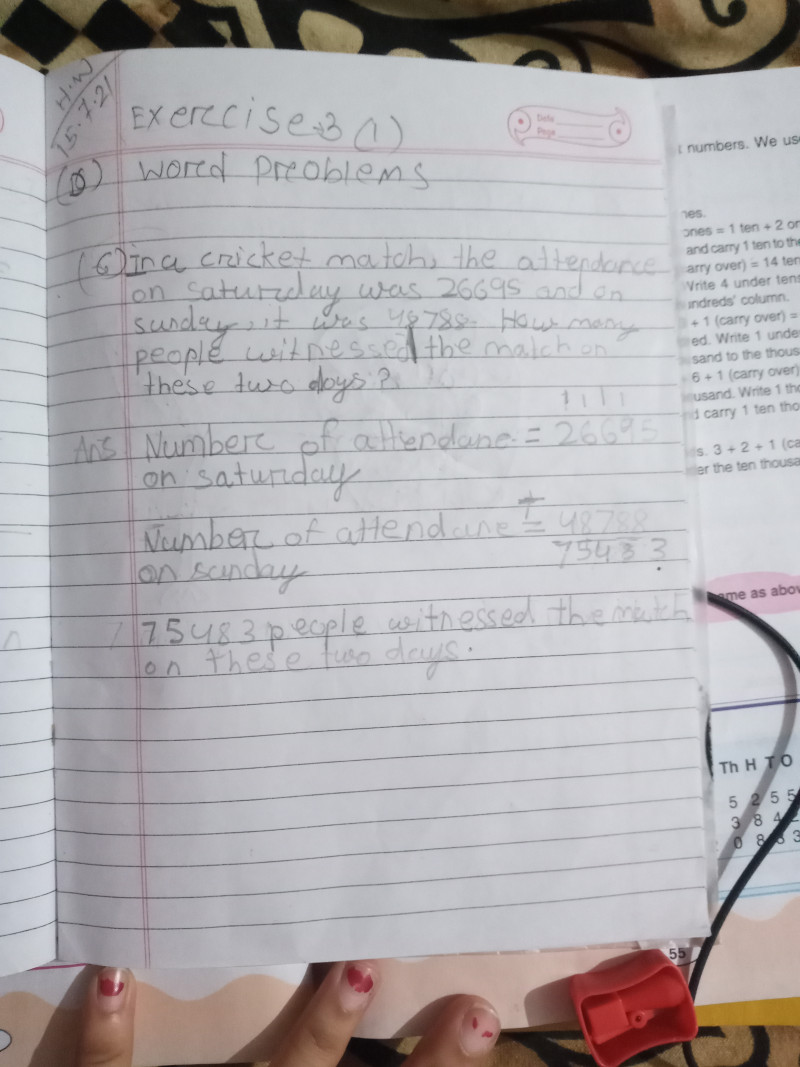 H.W
15.7.21
Exercise-3 (1)
Date
Page
(D) Word Preoblems
(6) In a cricket match, the attendance
on saturday was 26695 and on
sunday, it was 48788. How many
people witnessed the match on
these two days?
1 1 1 1
Ans Number of attendane = 26695
on saturday
+
Number of attendane = 48788
on sunday
75483
75483 people witnessed the match
on these two days.
numbers. We us
nes.
ones = 1 ten + 2 on
and carry 1 ten to the
arry over) = 14 ten
Write 4 under tens
undreds' column.
+ 1 (carry over) =
ed. Write 1 unde
sand to the thous
6 + 1 (carry over)
usand. Write 1 tho
d carry 1 ten tho
s. 3 + 2 + 1 (ca
er the ten thousa
ame as abov
Th H T O
5 2 5 5
3 8 4
0 8 3 3
55